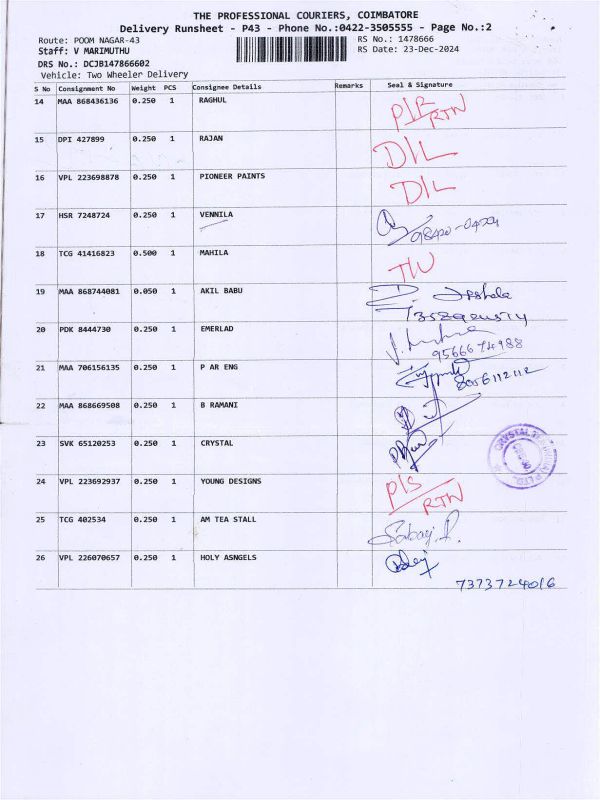 THE PROFESSIONAL COURIERS, COIMBATORE
Delivery Runsheet - P43 - Phone No.:0422-3505555 - Page No.:2
Route: POOM NAGAR-43 RS No.: 1478666
Staff: V MARIMUTHU RS Date: 23-Dec-2024
DRS No.: DCJB147866602
Vehicle: Two Wheeler Delivery
S No Consignment No Weight PCS Consignee Details Remarks Seal & Signature
14 MAA 868436136 0.250 1 RAGHUL P/R RTN
15 DPI 427899 0.250 1 RAJAN D/L
16 VPL 223698878 0.250 1 PIONEER PAINTS D/L
17 HSR 7248724 0.250 1 VENNILA
18 TCG 41416823 0.500 1 MAHILA
19 MAA 868744081 0.050 1 AKIL BABU
20 PDK 8444730 0.250 1 EMERLAD 9566674988
21 MAA 706156135 0.250 1 P AR ENG
22 MAA 868669508 0.250 1 B RAMANI
23 SVK 65120253 0.250 1 CRYSTAL
24 VPL 223692937 0.250 1 YOUNG DESIGNS P/S RTN
25 TCG 402534 0.250 1 AM TEA STALL
26 VPL 226070657 0.250 1 HOLY ASNGELS
7373724016